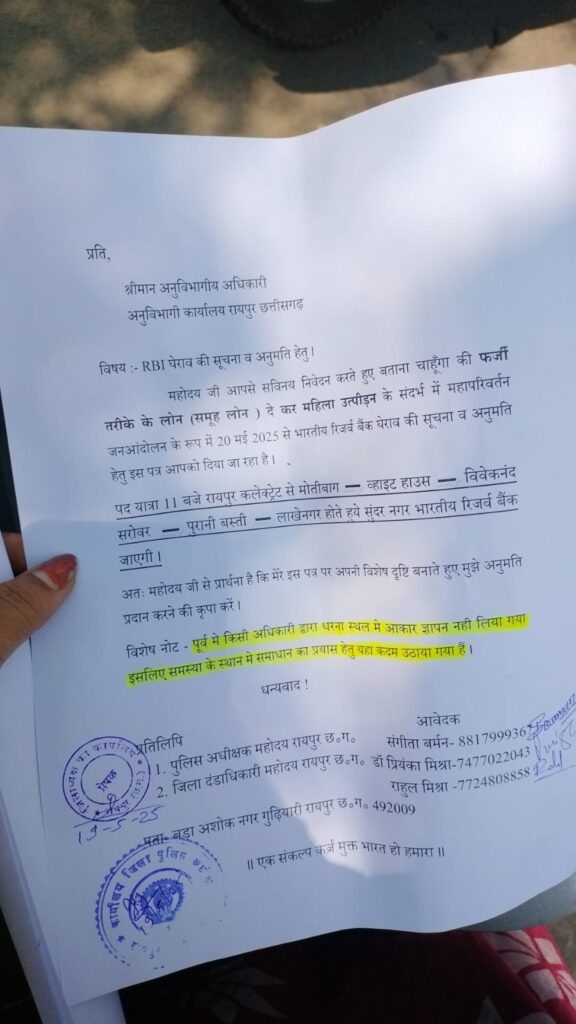 प्रति,
श्रीमान अनुविभागीय अधिकारी
अनुविभागी कार्यालय रायपुर छत्तीसगढ़
विषय :- RBI घेराव की सूचना व अनुमति हेतु।
महोदय जी आपसे सविनय निवेदन करते हुए बताना चाहूँगा की फर्जी
तरीके के लोन (समूह लोन ) दे कर महिला उत्पीड़न के संदर्भ में महापरिवर्तन
जनआंदोलन के रूप में 20 मई 2025 से भारतीय रिजर्व बैंक घेराव की सूचना व अनुमति
हेतु इस पत्र आपको दिया जा रहा है।
पद यात्रा 11 बजे रायपुर कलेक्ट्रेट से मोतीबाग — व्हाइट हाउस — विवेकनंद
सरोवर — पुरानी बस्ती — लाखेनगर होते हुये सुंदर नगर भारतीय रिजर्व बैंक
जाएगी।
अतः महोदय जी से प्रार्थना है कि मेरे इस पत्र पर अपनी विशेष दृष्टि बनाते हुए मुझे अनुमति
प्रदान करने की कृपा करें।
विशेष नोट - पूर्व मे किसी अधिकारी द्वारा धरना स्थल मे आकार ज्ञापन नही लिया गया
इसलिए समस्या के स्थान मे समाधान का प्रयास हेतु यहा कदम उठाया गया हैं।
धन्यवाद !
प्रतिलिपि
1. पुलिस अधीक्षक महोदय रायपुर छ०ग०
2. जिला दंडाधिकारी महोदय रायपुर छ०ग०
आवेदक
संगीता बर्मन- 8817999362
डॉ प्रियंका मिश्रा-7477022043
राहुल मिश्रा -7724808858
19-5-25
पता- बड़ा अशोक नगर गुढ़ियारी रायपुर छ०ग० 492009
॥ एक संकल्प कर्ज मुक्त भारत हो हमारा ॥
कार्यालय जिला पुलिस